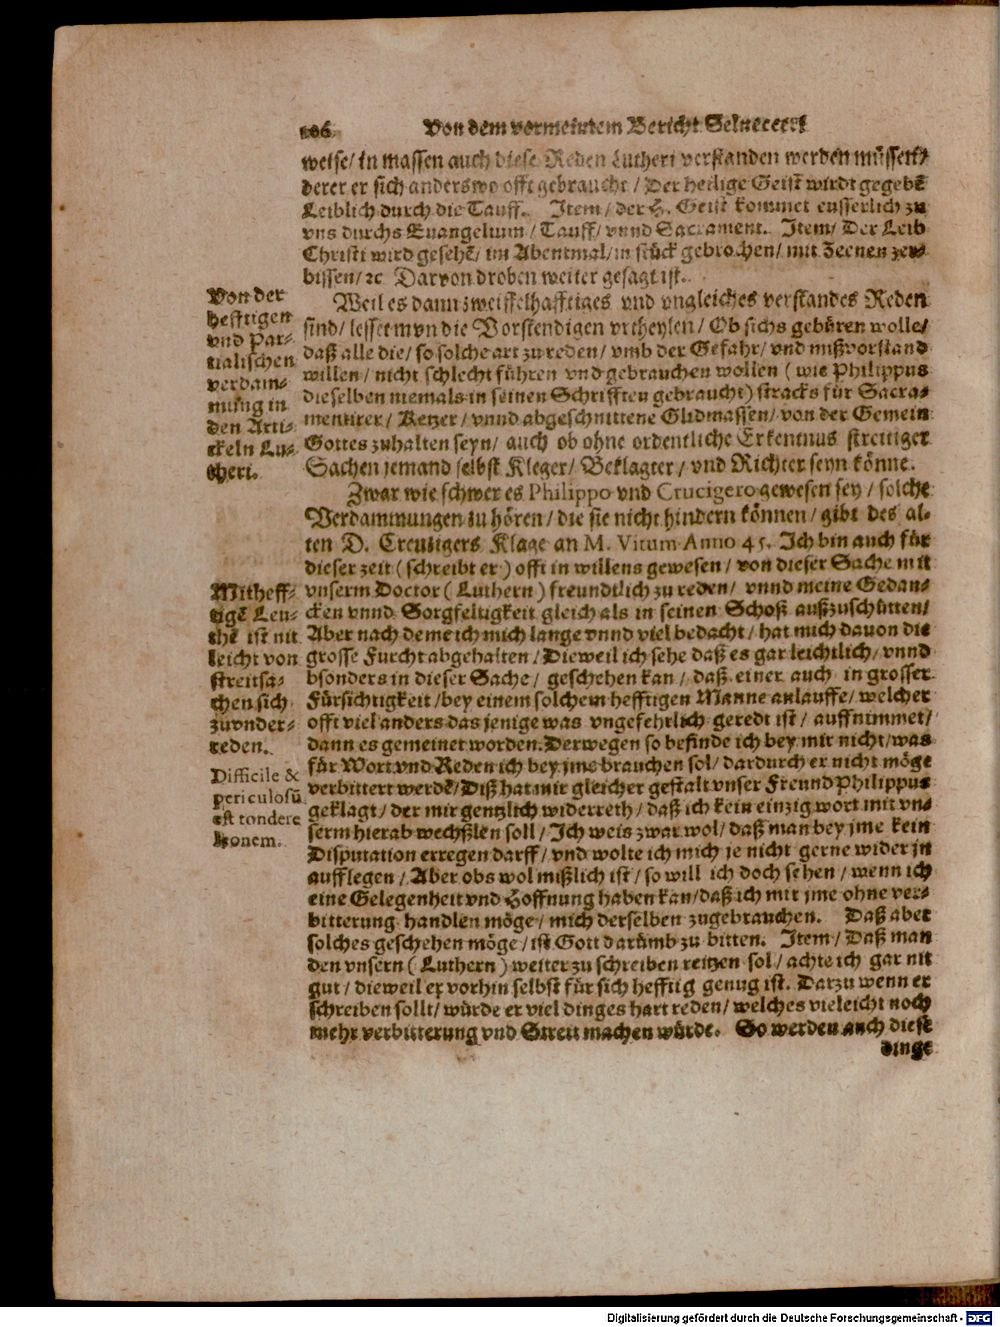 106. Von dem vermeintem Bericht Selnecceri
weise/ in massen auch diese Reden Lutheri verstanden werden müssen/
derer er sich anderswo offt gebraucht / Der heilige Geist wirdt gegebē
Leiblich durch die Tauff. Item/ der H. Geist kommet eusserlich zu
vns durchs Euangelium / Tauff/ vnnd Sacrament. Item/ Der Leib
Christi wird gesehē/ im Abentmal/ in stück gebrochen/ mit Zeenen zer-
bissen/ ꝛc Darvon droben weiter gesagt ist.
Weil es dann zweiffelhafftiges vnd vngleiches verstandes Reden
sind/ lesset mvn die Vorstendigen vrtheylen / Ob sichs gebüren wolle/
daß alle die/ so solche art zu reden/ vmb der Gefahr/ vnd mißvorstand
willen / nicht schlecht führen vnd gebrauchen wollen ( wie Philippus
dieselben niemals in seinen Schrifften gebraucht) stracks für Sacra-
mentirer/ Ketzer/ vnnd abgeschnittene Glidmassen/ von der Gemein
Gottes zuhalten seyn/ auch ob ohne ordentliche Erkentnus streitiger
Sachen jemand selbst Kleger/ Beklagter / vnd Richter seyn könne.
Von der
hefftigen
vnd Par-
tialischen
verdam-
mung in
den Arti-
ckeln Lu-
theri.
Zwar wie schwer es Philippo vnd Crucigero gewesen sey / solche
Verdammungen zu hören / die sie nicht hindern können / gibt des al-
ten D. Creutzigers Klage an M. Vitum Anno 45. Ich bin auch für
dieser zeit ( schreibt er ) offt in willens gewesen / von dieser Sache mit
vnserm Doctor ( Luthern ) freundtlich zu reden/ vnnd meine Gedan-
cken vnnd Sorgfeltigkeit gleich als in seinen Schoß außzuschütten/
Aber nach deme ich mich lange vnnd viel bedacht / hat mich dauon die
grosse Furcht abgehalten / Dieweil ich sehe daß es gar leichtlich / vnnd
bsonders in dieser Sache / geschehen kan / daß einer auch in grosser
Fürsichtigkeit /bey einem solchem hefftigen Manne anlauffe/ welcher
offt viel anders das jenige was vngefehrlich geredt ist / auffnimmet/
dann es gemeinet worden. Derwegen so befinde ich bey mir nicht/was
für Wort vnd Reden ich bey jme brauchen sol/ dardurch er nicht möge
verbittert werdē/ Diß hat mir gleicher gestalt vnser Freund Philippus
geklagt/ der mir gentzlich widerreth / daß ich kein einzig wort mit vn-
serm hierab wechßlen soll / Ich weis zwar wol/ daß man bey jme kein
Disputation erregen darff / vnd wolte ich mich je nicht gerne wider jn
aufflegen / Aber obs wol mißlich ist / so will ich doch sehen / wenn ich
eine Gelegenheit vnd Hoffnung haben kan/daß ich mit jme ohne ver-
bitterung handlen möge / mich derselben zugebrauchen. Daß aber
solches geschehen möge / ist Gott darümb zu bitten. Item / Daß man
den vnsern ( Luthern ) weiter zu schreiben reitzen sol / achte ich gar nit
gut / dieweil er vorhin selbst für sich hefftig genug ist. Darzu wenn er
schreiben sollt/ würde er viel dinges hart reden/ welches vieleicht noch
mehr verbitterung vnd Streit machen würde. So werden auch diese
dinge
Mit heff-
tigē Leu-
thē ist nit
leicht von
streitsa-
chen sich
zu vnder-
reden.
Difficile &
periculosū
est tondere
leonem.
Digitalisierung gefördert durch die Deutsche Forschungsgemeinschaft - DFG